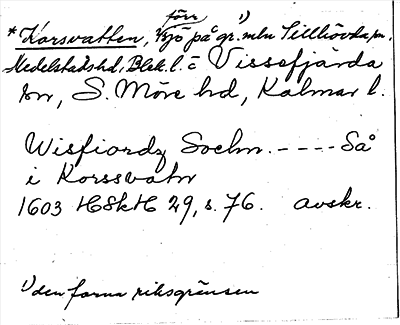 förr 1)
*Korsvatten, sjö på gr. mln Tillhövda sn,
Medelstads hd, Blek. l. o Vissefjärda
sn, S. Möre hd, Kalmar l.
Wisfiordz Sochn. ---- Så
i Korssvatn
1603 HSkH 29, s. 76. avskr.
1) den forna riksgränsen